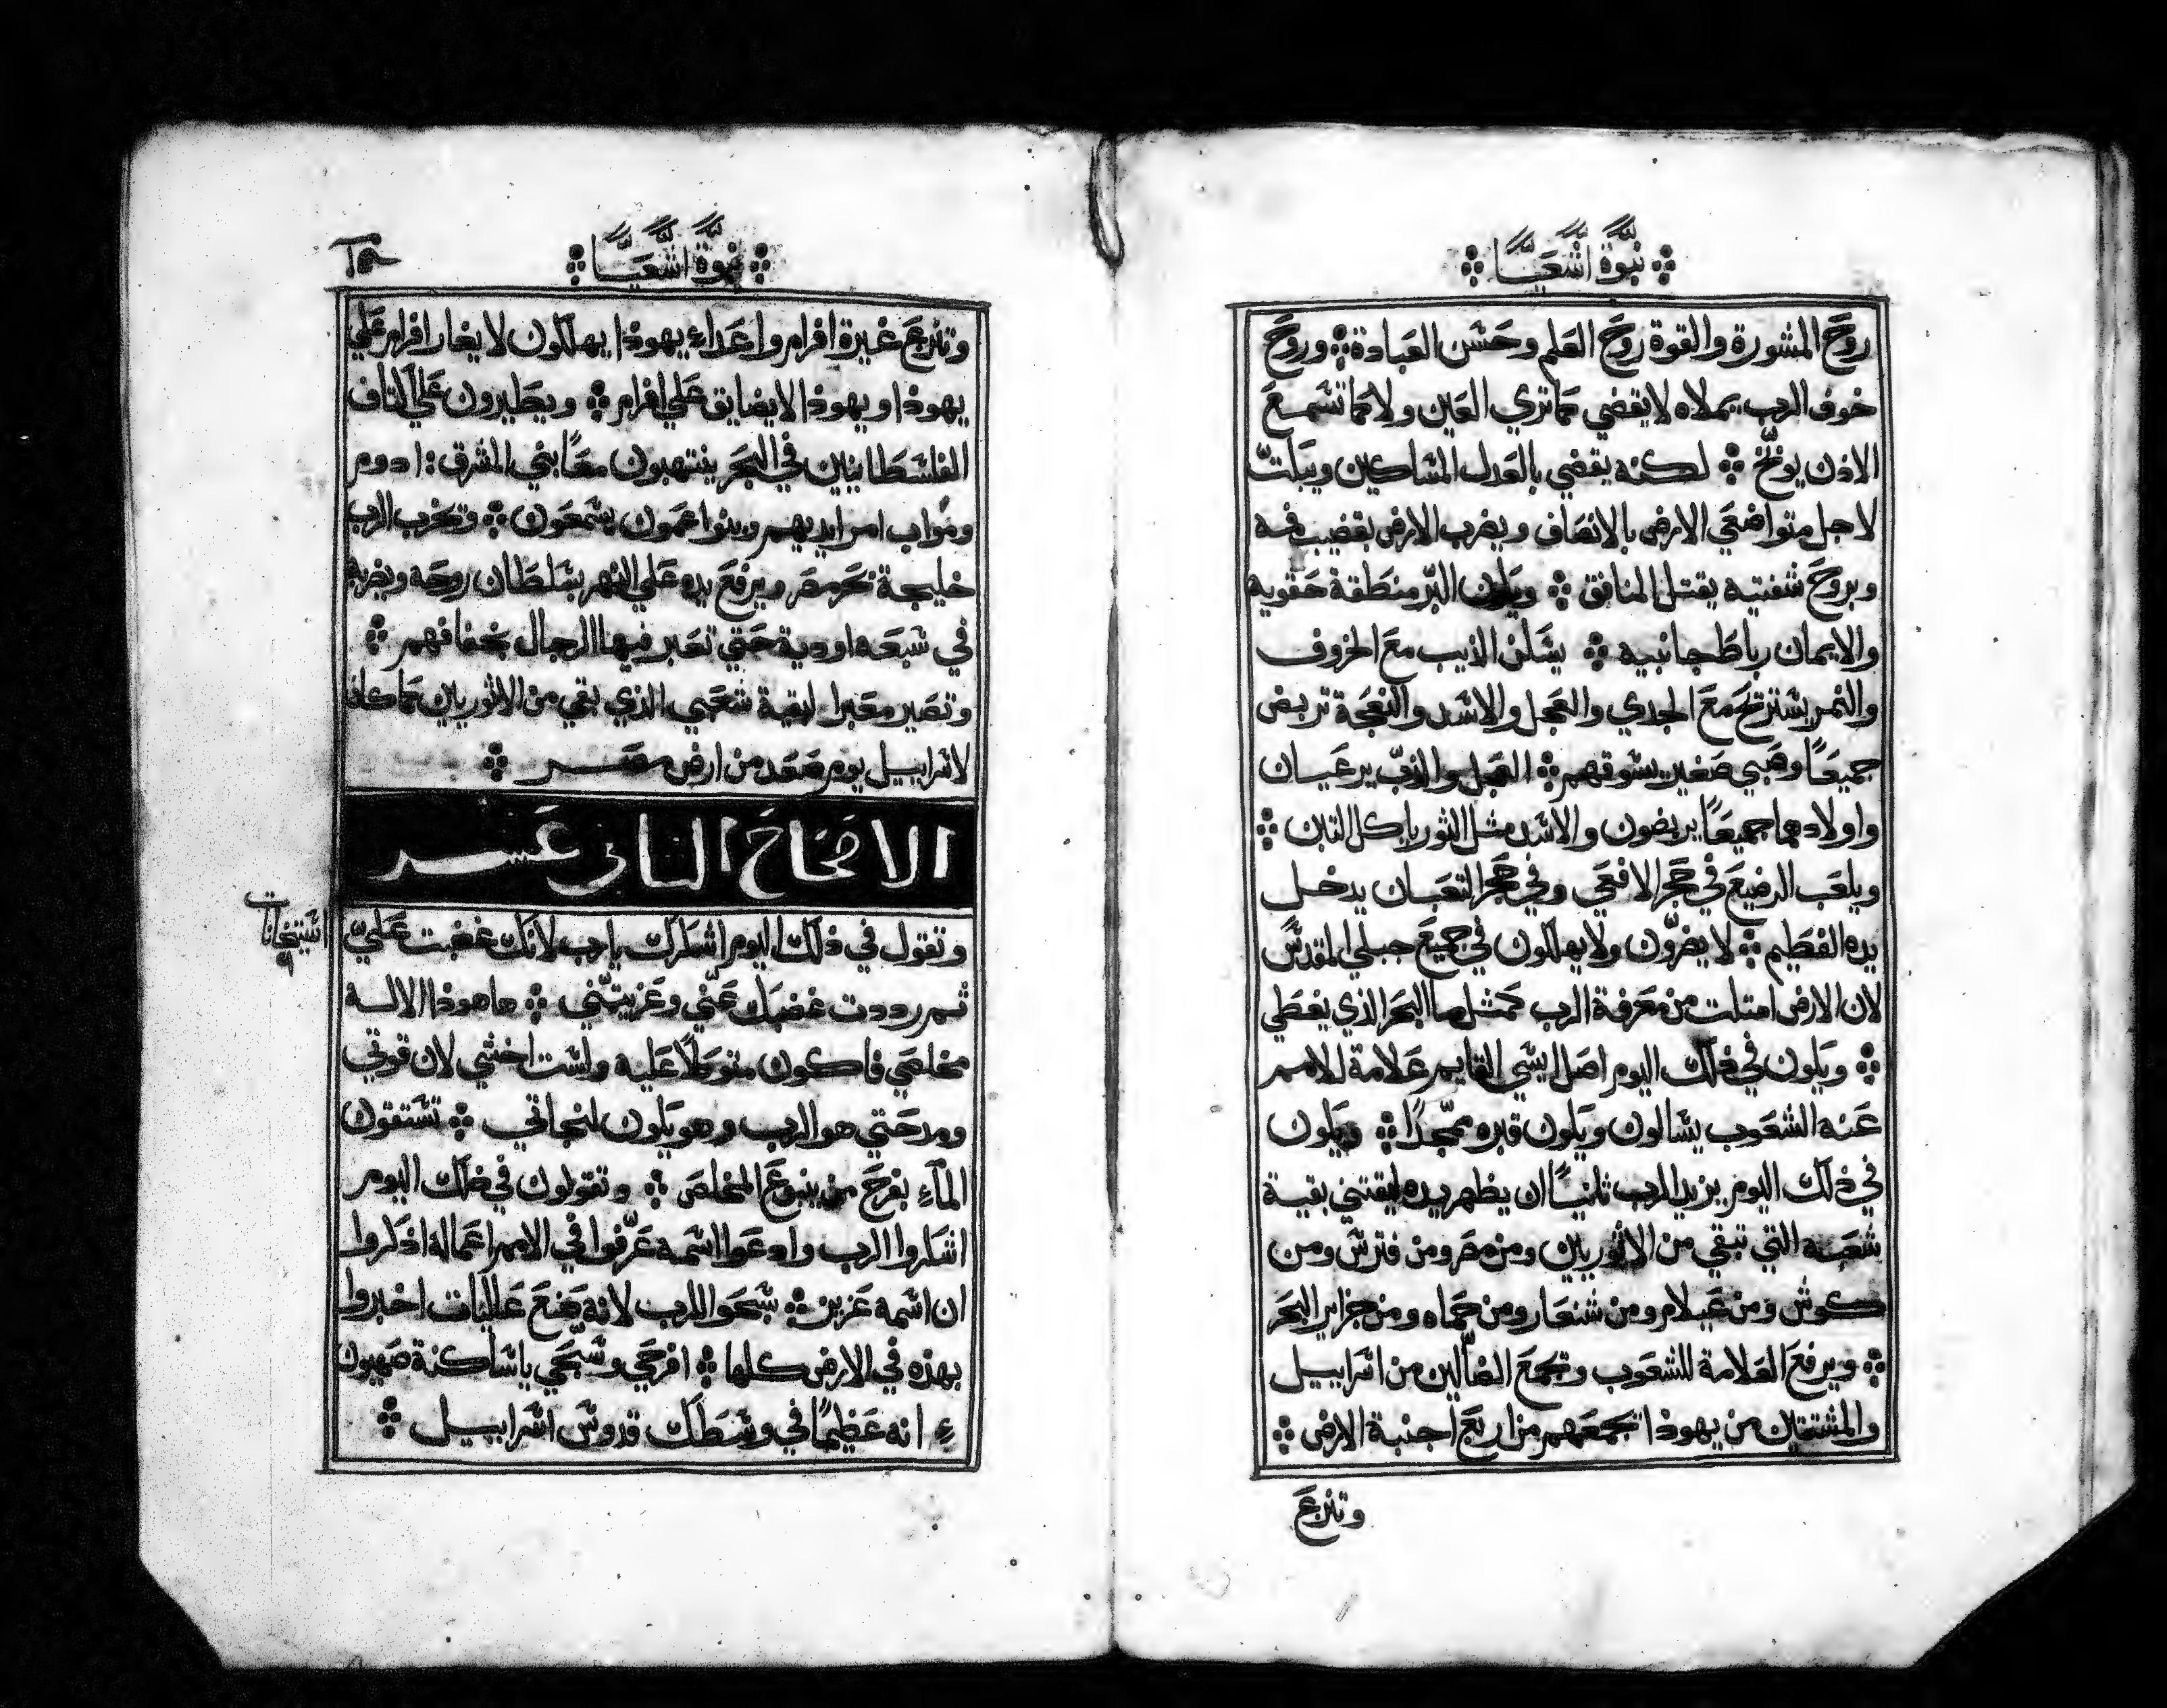 نبوة اشعيا
روح المشورة والقوة روح العلم وحسن العبادة وروح
خوف الرب يملاه لا يقضي كما تري العين ولا كما تسمع
الاذن يوبّخ لكنه يقضي بالعدل المساكين ويبكتّ
لاجل متواضعي الارض بالانصاف ويضرب الارض بقضيب فمه
وبروح شفتيه يقتل المنافق ويكون البرّ منطقة حقويه
والايمان رباط جانبيه يسكن الذيب مع الخروف
والنمر يستريح مع الجدي والعجل والاسد والنعجة تربض
جميعًا وصبي صغير يسوقهم العجل والدبّ يرعيان
واولادهما جميعًا يربضون والاسد مثل الثور ياكل التبن
ويلعب الرضيع في حجر الافعي وفي حجر التعبان يدخل
يده الفطيم لا يضرّون ولا يهلكون في جميع جبلي المقدس
لان الارض امتلت من معرفة الرب كمثل ما البحر الذي يغطي
ويكون في ذلك اليوم اصل ايسي القايم علامة للامم
عنه الشعوب يسالون ويكون قبره ممجّدًا ويكون
في ذلك اليوم يزيد الرب ثانيًا ان يظهر يده ليقتني بقية
شعبه التي تبقي من الاثوريين ومن مصر ومن فترس ومن
كوش ومن عيلام ومن شنعار ومن حماه ومن جزاير البحر
ويرفع العلامة للشعوب ويجمع الضالّين من اسراييل
والمشتتين من يهوذا يجمعهم من اربع اجنبة الارض
وتنزع
نبوة اشعيا
وتنزع غيرة افرام واعداء يهوذا يهلكون لا يغار افرام علي
يهوذا ويهوذا لا يضايق علي افرام ويطيرون علي اكتاف
الفلسطانيين في البحر ينتهبون معًا بني المشرق: ادوم
ومواب امر ايديهم وبنوا عمون يسمعون ويخرب الرب
خليجة بحر مصر ويرفع يده علي النهر بسلطان روحه ويضربه
في سبعه اودية حتي تعبر فيها الرجال بخفافهم
وتصير معبرا لبقية شعبي الذي بقي من الاثوريين كما كان
لاسراييل يوم صعد من ارض مصر
الاصحاح الثاني عشر
استيخانات
وتقول في ذلك اليوم اشكرك يا رب لانك غضبت عليّ
ثم رددت غضبك عنّي وعزيتنّي ها هوذا الاله
مخلصي فاكون متوكلًا عليه ولست اخشي لان قوتي
ومدحتي هو الرب وهو يكون لنجاتي تستقون
الماء بفرح من ينبوع المخلص وتقولون في ذلك اليوم
اشكروا الرب وادعوا اسمه عرّفوا في الامم اعماله اذكروا
ان اسمه عزيز سبحوا للرب لانه يصنع عاليات اخبروا
بهذه في الارض كلها افرحي وسبحي يا ساكنة صهيون
انه عظيمًا في وسطك قدوس اسراييل